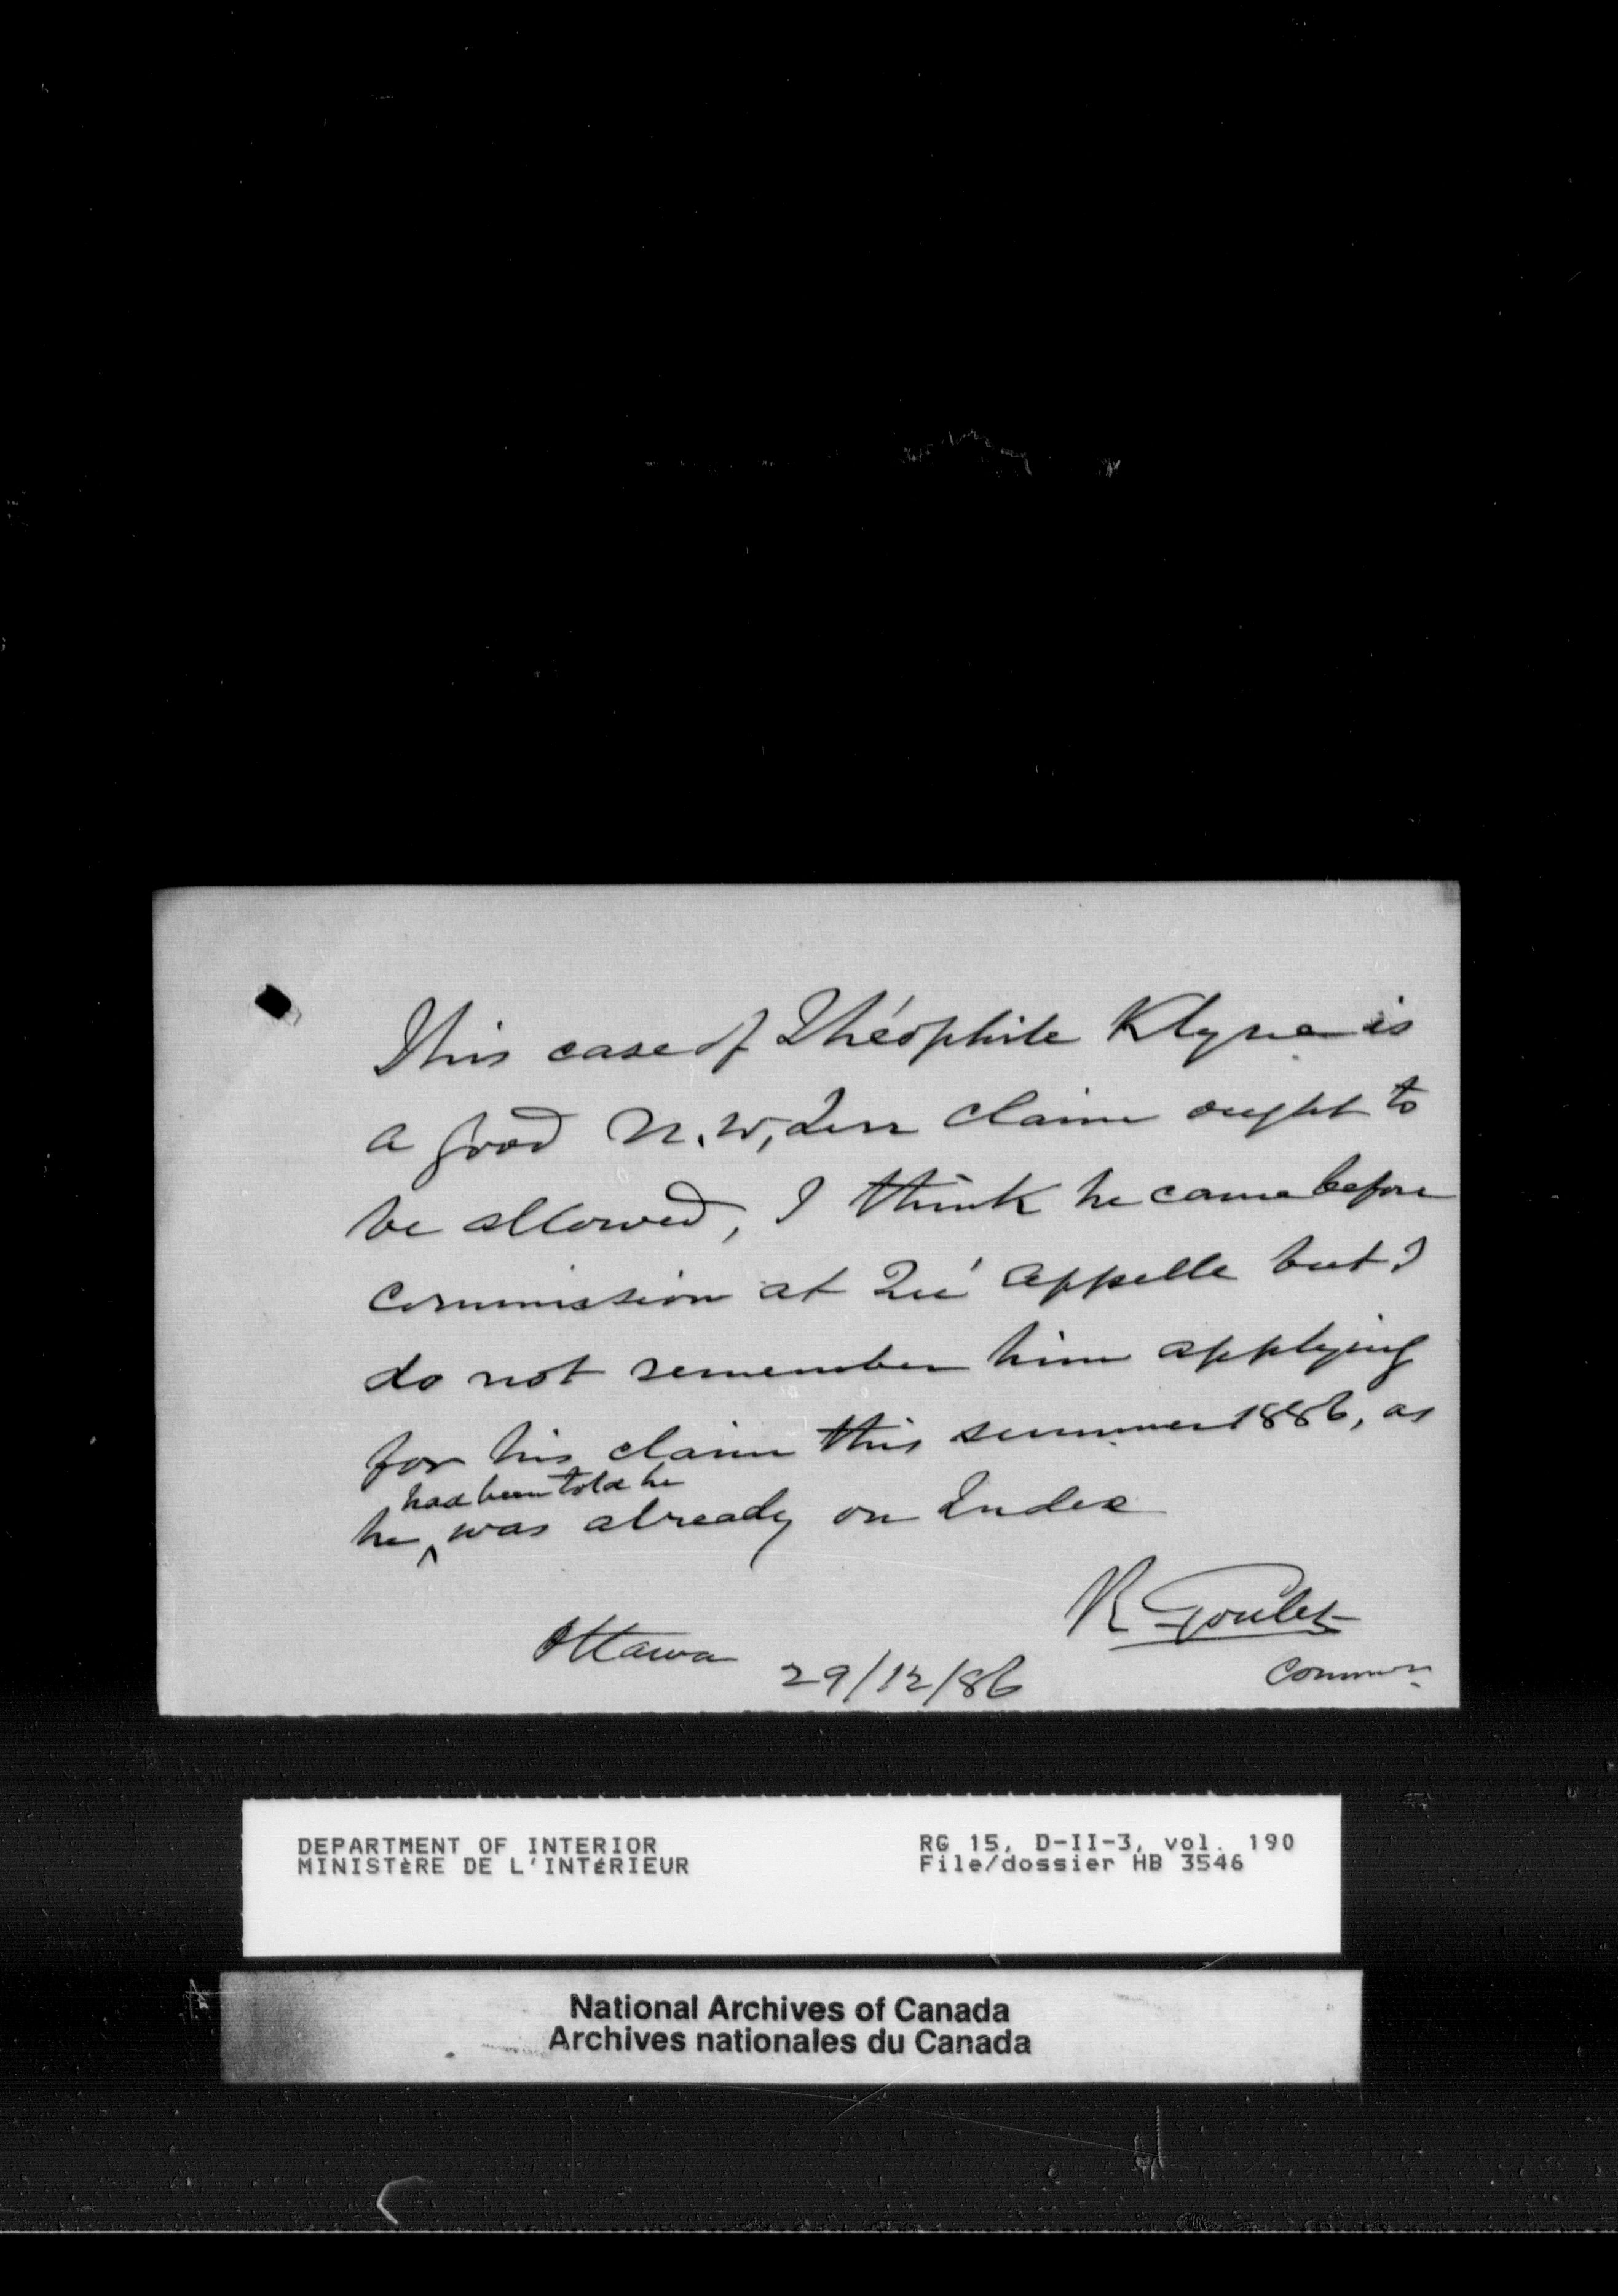 This case of Théophile Klyne is
a good N.W, Terr claim ought to
be allowed, I think he came before
commission at Qu'appelle but I
do not remember him applying
for his claim this summer 1886, as
had been told he
he ^ was already on Index
R Goulet
Ottawa 29/12/86 Commr.
DEPARTMENT OF INTERIOR RG 15, D-II-3, vol. 190
MINISTÈRE DE L'INTÉRIEUR File/dossier HB 3546
National Archives of Canada
Archives nationales du Canada